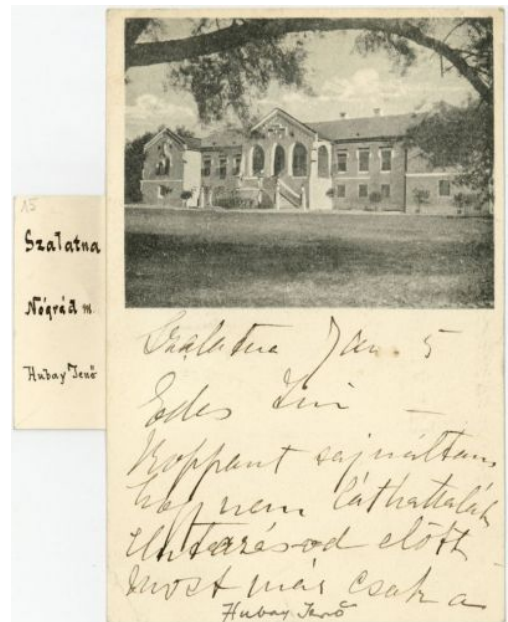 15
Szalatna
Nógrád m.
Hubay Jenő
Szalatna Jan. 5
Edes Zsini —
Roppant sajnáltam
hogy nem láthattalak
elutazásod előtt
Most már csak a
Hubay Jenő